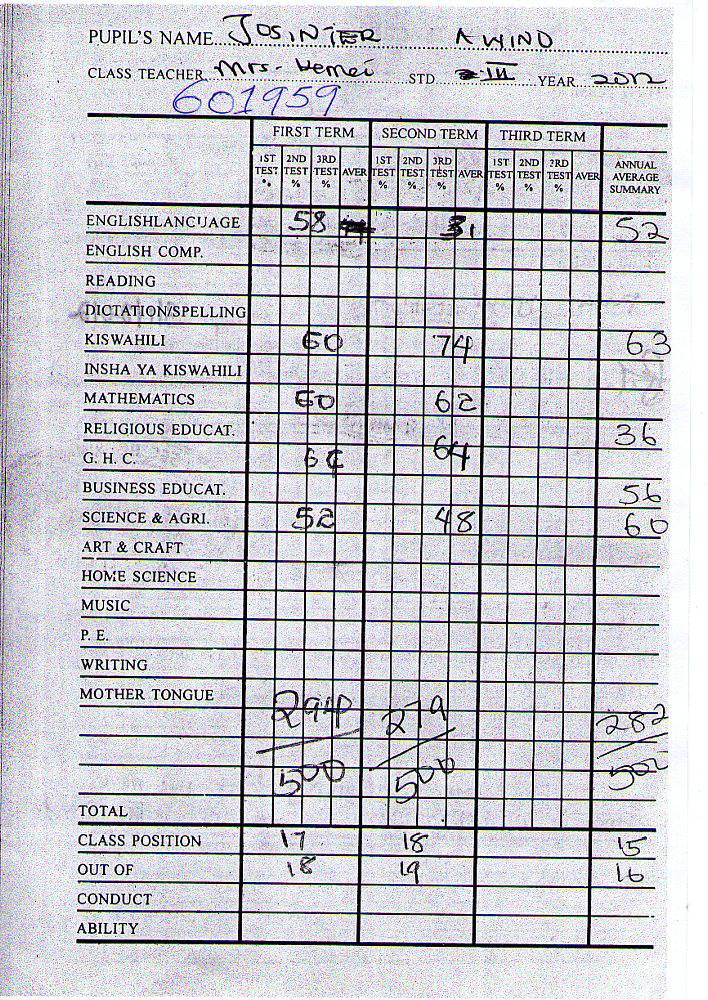 PUPIL'S NAME JOSINTER AWINO
CLASS TEACHER Mrs. STD. III YEAR 2012
601959
FIRST TERM SECOND TERM THIRD TERM
1ST TEST % 2ND TEST % 3RD TEST % AVER 1ST TEST % 2ND TEST % 3RD TEST % AVER 1ST TEST % 2ND TEST % 3RD TEST % AVER ANNUAL AVERAGE SUMMARY
ENGLISH LANGUAGE 58 31 52
ENGLISH COMP.
READING
DICTATION/SPELLING
KISWAHILI 60 74 63
INSHA YA KISWAHILI
MATHEMATICS 60 62
RELIGIOUS EDUCAT. 36
G. H. C. 64 64
BUSINESS EDUCAT. 56
SCIENCE & AGRI. 52 48 60
ART & CRAFT
HOME SCIENCE
MUSIC
P. E.
WRITING
MOTHER TONGUE
294 279 282
500 500 500
TOTAL
CLASS POSITION 17 18 15
OUT OF 18 19 16
CONDUCT
ABILITY